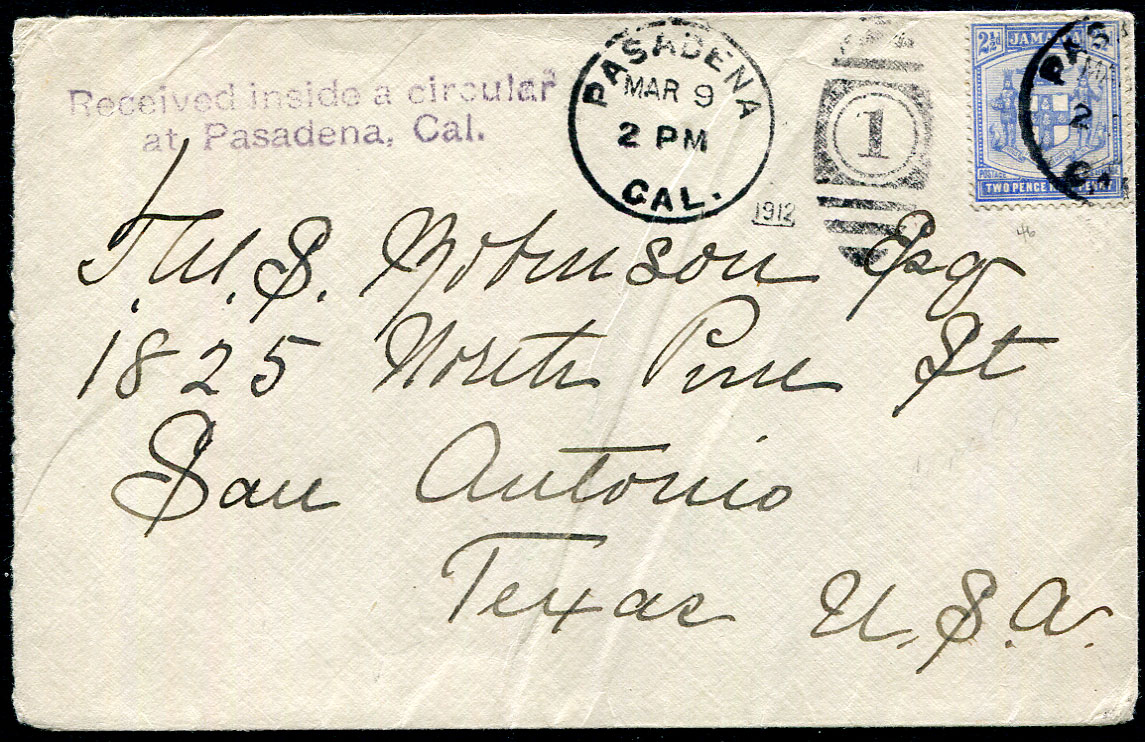 Received inside a circular
at Pasadena, Cal.
PASADENA
MAR 9
2 PM
CAL.
1912
1
2½d JAMAICA
POSTAGE
TWO PENCE HALF PENNY
PAS
2
CAL
46
S. Robinson Esq
1825 North Pine St
San Antonio
Texas U.S.A.